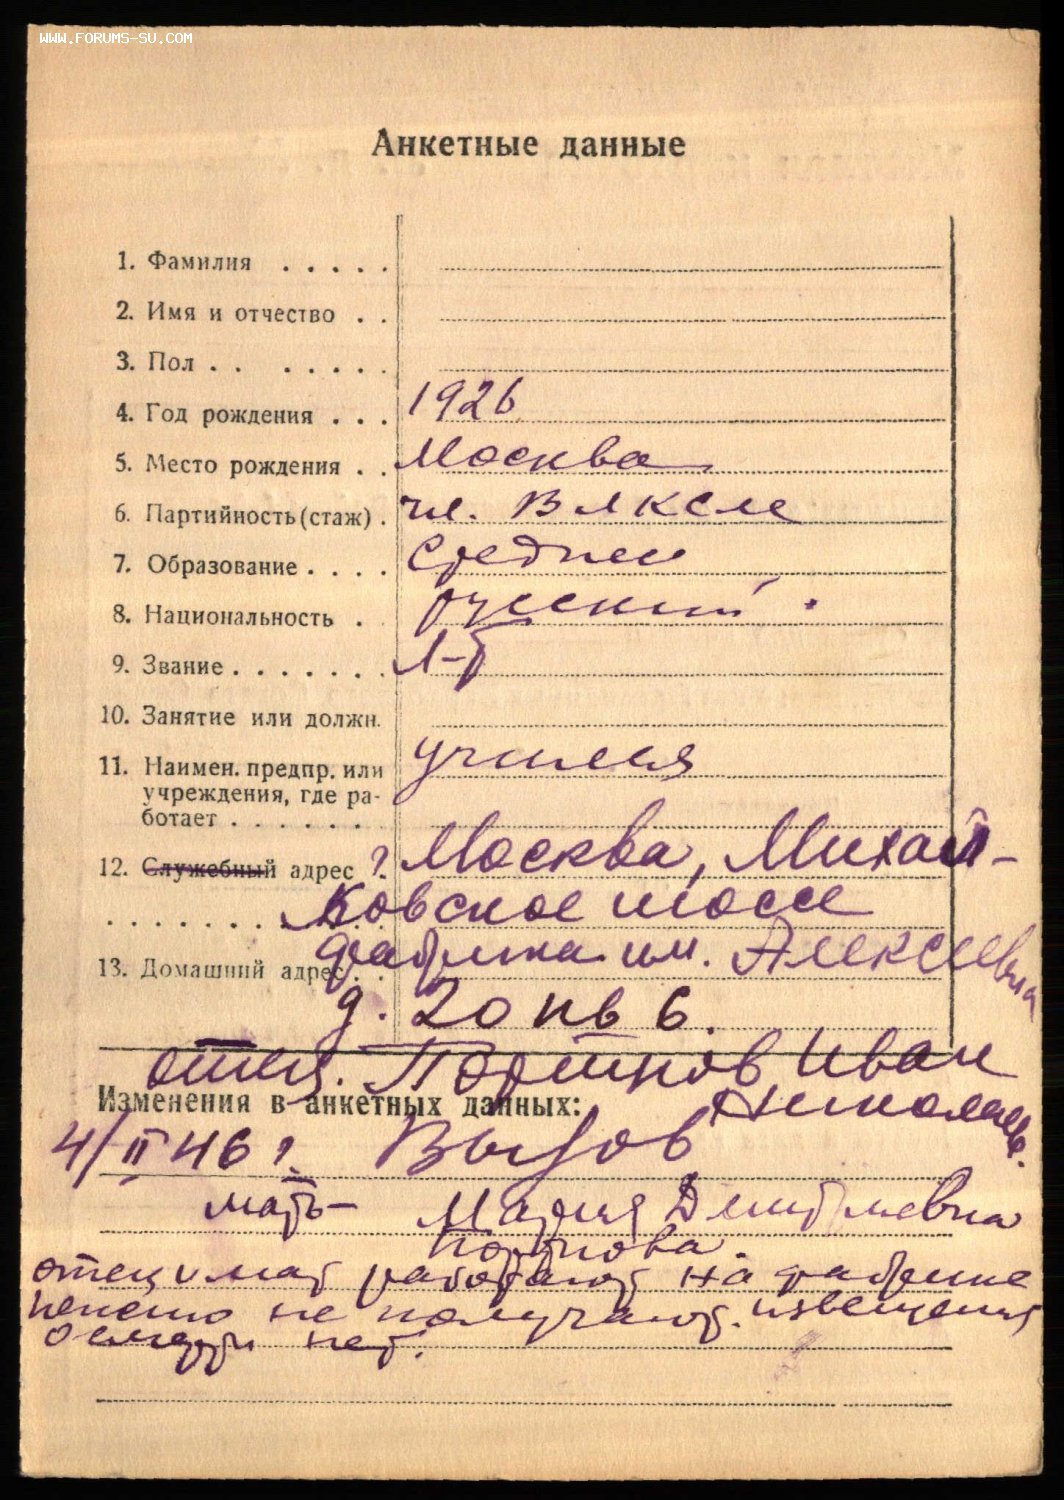 WWW.FORUMS-SU.COM
Анкетные данные
1. Фамилия . . . . .
2. Имя и отчество . .
3. Пол . . . . . . .
4. Год рождения . . . 1926
5. Место рождения . . Москва
6. Партийность (стаж) . чл. ВЛКСМ
7. Образование . . . . среднее
8. Национальность . русский.
9. Звание . . . . . . . л-т
10. Занятие или должн.
11. Наимен. предпр. или учился
учреждения, где ра-
ботает . . . . . . .
12. Служебный адрес . Москва, Михал-
ковское шоссе
фабрика им. Алексеевна
13. Домашний адрес . .
д. 20 кв 6.
отец. Портнов Иван
Изменения в анкетных данных: Николаев.
4/II 46 г. Вызов
мать – Мария Дмитриевна
Портнова.
отец и мат работают на фабрике
пенсию не получают. извещения
о смерти нет.